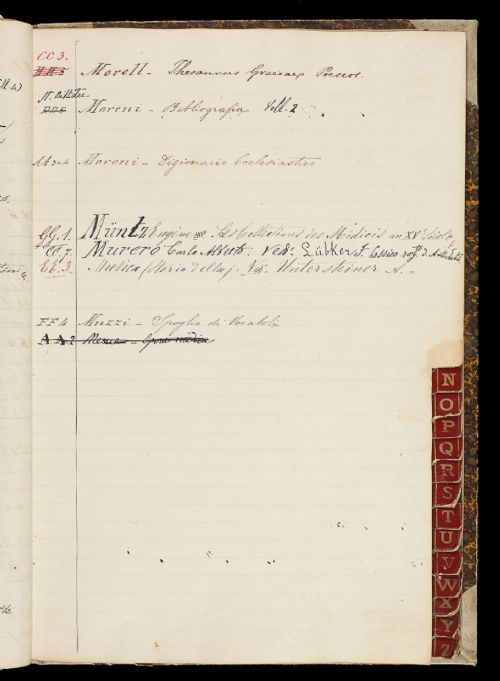 CC 3.
Morell - Thesaurus Graecae Poeseos.
Moreni - Bibliografia Voll. 2
Moroni - Dizionario Ecclesiastico
GG. 1. Müntz Eugène Les Collections des Médicis au XVe Siècle
Murero Carlo Alberto. Ved: Lübkerst. Lessico rag. d. Antichità
EE. 3. Musica (Storia della). Ved. Untersteiner A.
FF 4 Muzzi - Spoglio di Vocaboli
A A 2
N
O
P
Q
R
S
T
U
V
W
X
Y
Z